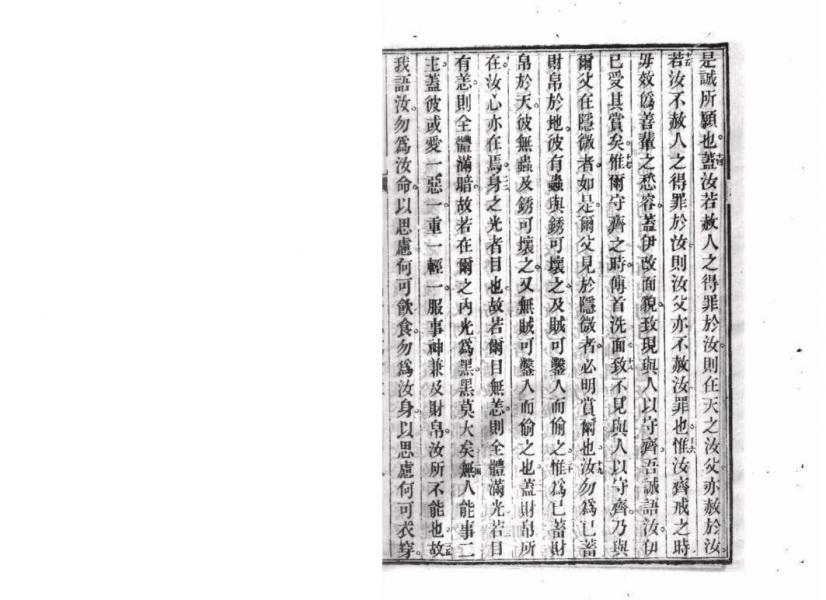 是誠所願也蓋汝若赦人之得罪於汝則在天之汝父亦赦於汝
若汝不赦人之得罪於汝則汝父亦不赦汝罪也惟汝齊戒之時
毋效僞善輩之愁容蓋伊改面貌致現與人以守齊吾誠語汝伊
已受其賞矣惟爾守齊之時傅首洗面致不見與人以守齊乃與
爾父在隱微者如是爾父見於隱微者必明賞爾也汝勿爲已蓄
財帛於地彼有蟲與銹可壞之及賊可鑿入而偷之惟爲已蓄財
帛於天彼無蟲及銹可壞之又無賊可鑿入而偷之也蓋財帛所
在汝心亦在焉身之光者目也故若爾目無恙則全體滿光若目
有恙則全體滿暗故若在爾之內光爲黑黑莫大矣無人能事二
主蓋彼或愛一惡一重一輕一服事神兼及財帛汝所不能也故
我語汝勿爲汝命以思慮何可飲食勿爲汝身以思慮何可衣穿